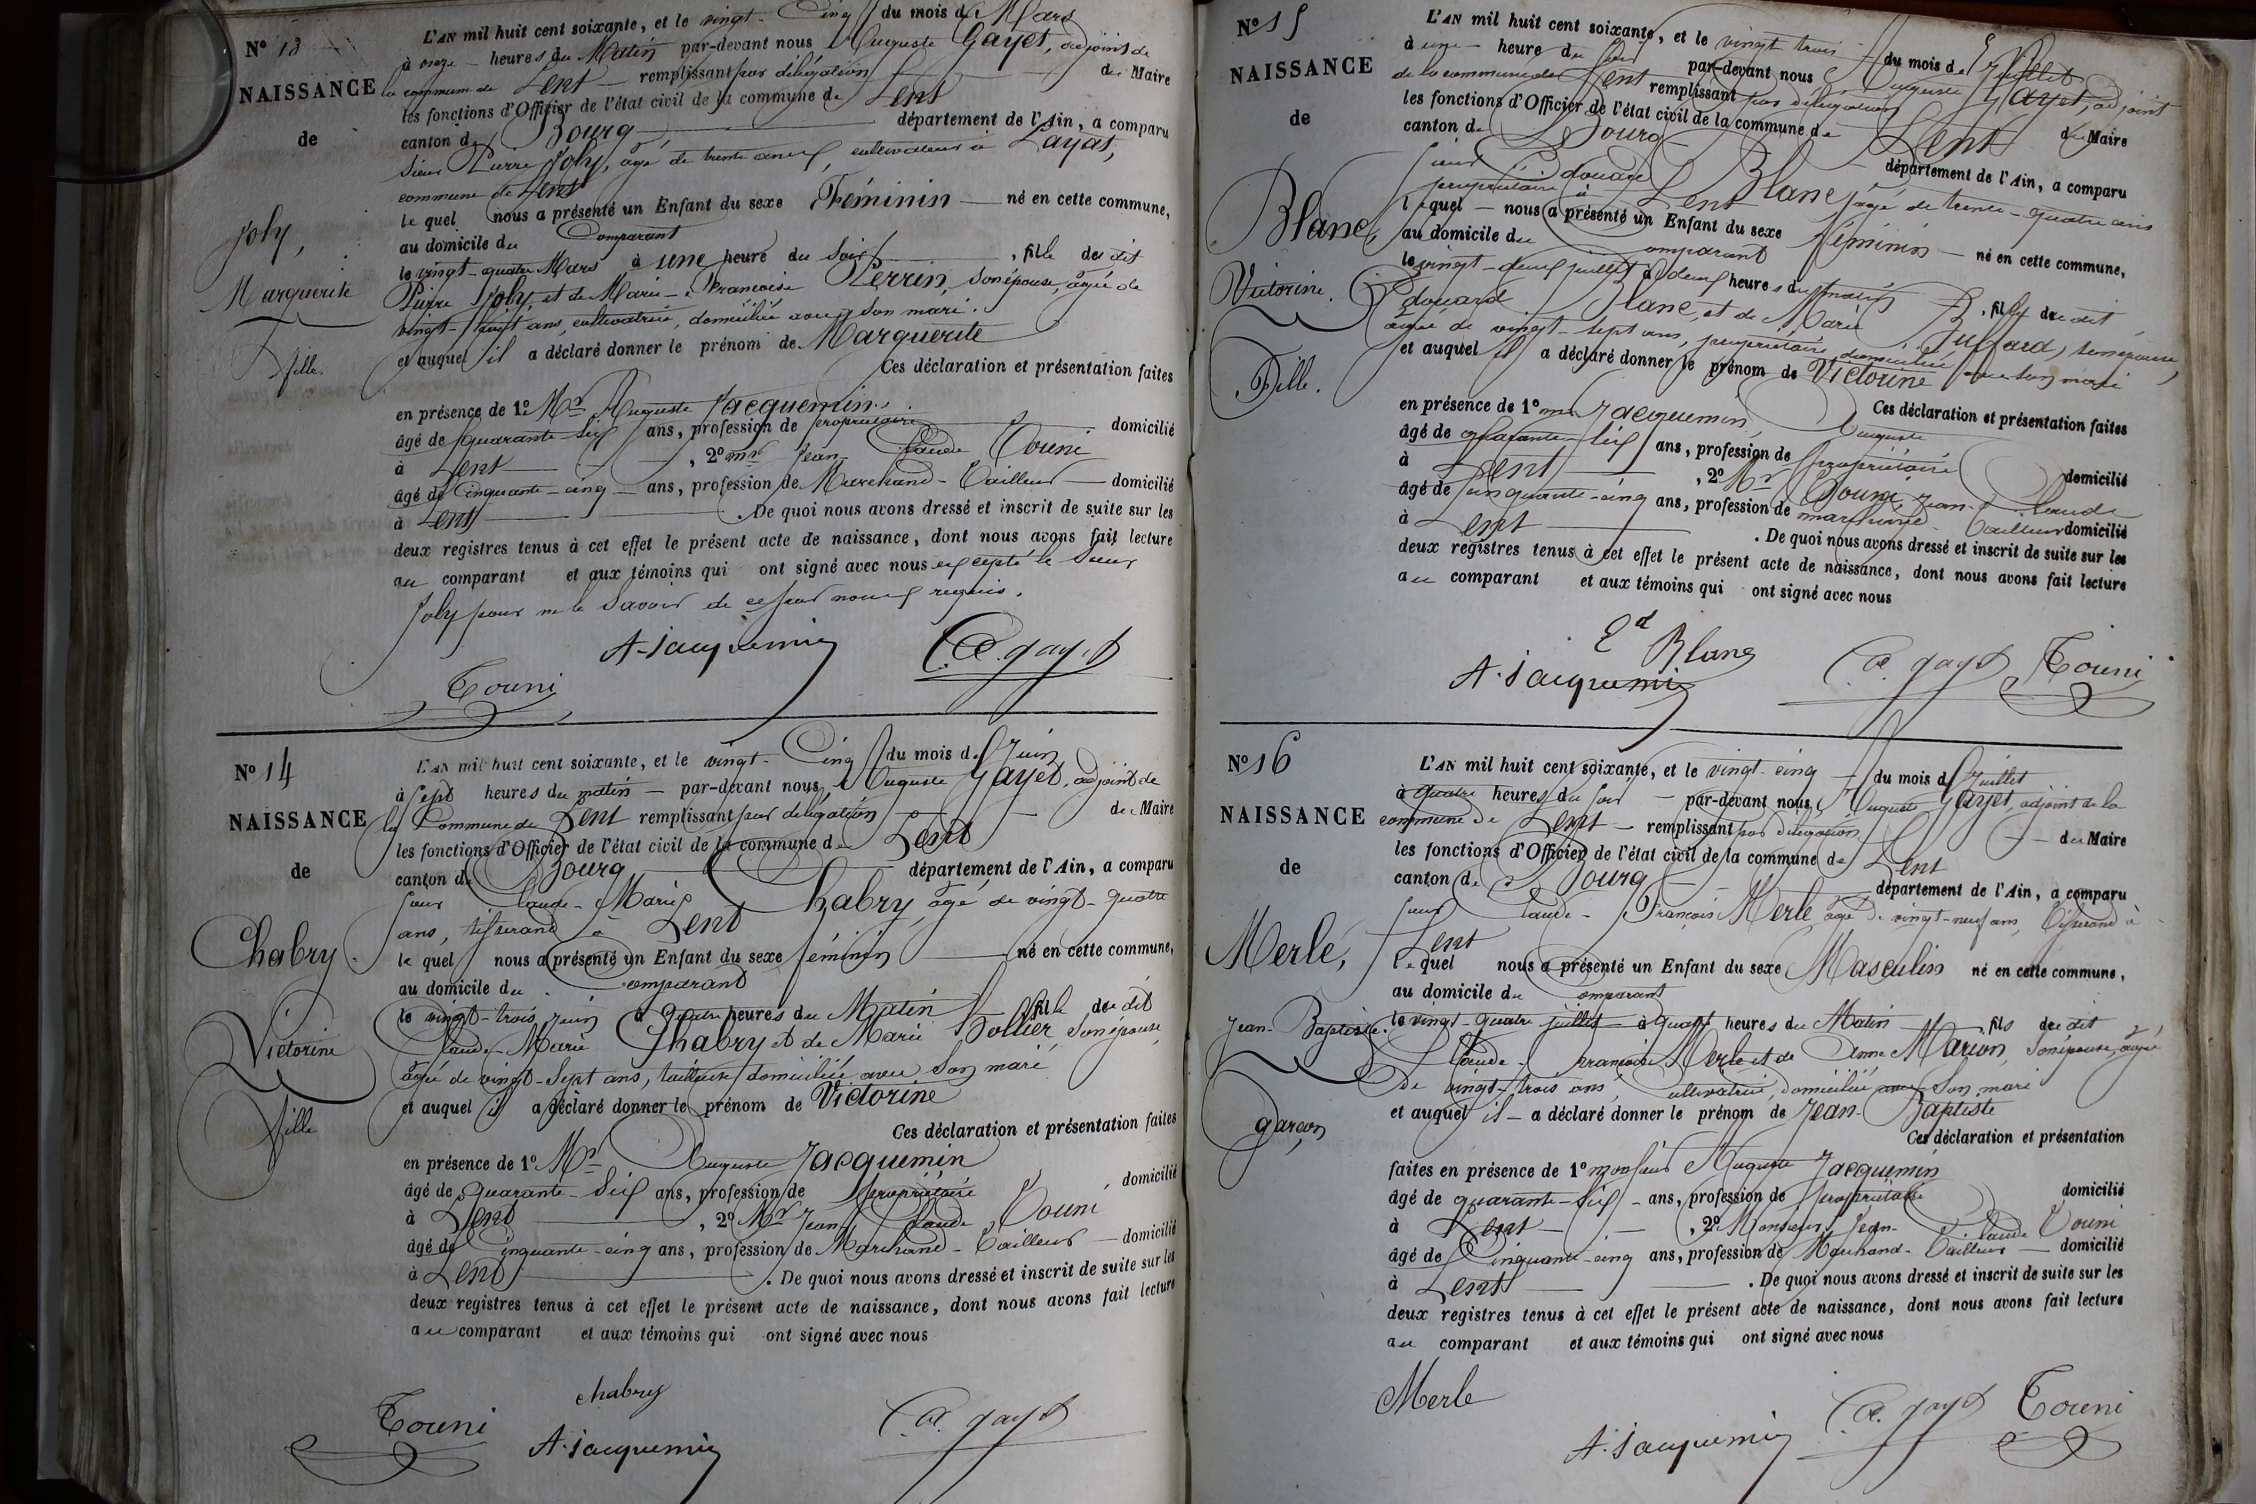 N° 13
NAISSANCE
de
Joly,
Marguerite
Fille.
L'AN mil huit cent soixante, et le vingt-Cinq du mois de Mars
à onze heures du Matin par-devant nous Auguste Gayet, adjoint de
la commune de Lent remplissant par délégation du Maire
les fonctions d'Officier de l'état civil de la commune de Lent
canton de Bourg département de l'Ain, a comparu
Sieur Pierre Joly, âgé de trente ans, cultivateur à Layat,
commune de Lent
le quel nous a présenté un Enfant du sexe Féminin né en cette commune,
au domicile du Comparant
le vingt-quatre Mars à une heure du Soir, fille du dit
Pierre Joly et de Marie-Françoise Perrin, son épouse, âgée de
vingt-huit ans, cultivatrice, domiciliée avec son mari.
et auquel il a déclaré donner le prénom de Marguerite
Ces déclaration et présentation faites
en présence de 1° Mr Auguste Jacquemin,
âgé de quarante-six ans, profession de propriétaire domicilié
à Lent, 2° Mr Jean Claude Touni
âgé de Cinquante-cinq ans, profession de Marchand-Tailleur domicilié
à Lent. De quoi nous avons dressé et inscrit de suite sur les
deux registres tenus à cet effet le présent acte de naissance, dont nous avons fait lecture
au comparant et aux témoins qui ont signé avec nous excepté le Sieur
Joly pour ne le savoir de ce par nous requis.
A. Jacquemin
A. Gayet
Touni
N° 14
NAISSANCE
de
Chabry.
Victorine
Fille
L'AN mil huit cent soixante, et le vingt-Cinq du mois de Juin
à sept heures du matin par-devant nous Auguste Gayet, adjoint de
la Commune de Lent remplissant par délégation du Maire
les fonctions d'Officier de l'état civil de la commune de Lent
canton de Bourg département de l'Ain, a comparu
Sieur Claude-Marie Chabry, âgé de vingt-quatre
ans, tisserand à Lent
le quel nous a présenté un Enfant du sexe féminin né en cette commune,
au domicile du Comparant
le vingt-trois Juin à quatre heures du Matin fille du dit
Claude-Marie Chabry et de Marie Sollier, son épouse,
âgée de vingt-Sept ans, tailleuse, domiciliée avec son mari
et auquel il a déclaré donner le prénom de Victorine
Ces déclaration et présentation faites
en présence de 1° Mr Auguste Jacquemin
âgé de quarante-six ans, profession de propriétaire domicilié
à Lent, 2° Mr Jean Claude Touni
âgé de Cinquante-cinq ans, profession de Marchand-Tailleur domicilié
à Lent. De quoi nous avons dressé et inscrit de suite sur les
deux registres tenus à cet effet le présent acte de naissance, dont nous avons fait lecture
au comparant et aux témoins qui ont signé avec nous
chabry
Touni
A. Jacquemin
A. Gayet
N° 15
NAISSANCE
de
Blanc,
Victorine.
Fille.
L'AN mil huit cent soixante, et le vingt trois du mois de Juillet
à une heure du Soir par-devant nous Auguste Gayet, adjoint
de la commune de Lent remplissant par délégation du Maire
les fonctions d'Officier de l'état civil de la commune de Lent
canton de Bourg département de l'Ain, a comparu
Sieur Edouard Blanc, âgé de trente-quatre ans
propriétaire à Lent
lequel nous a présenté un Enfant du sexe féminin né en cette commune,
au domicile du Comparant
le vingt-deux juillet à deux heures du matin, fille du dit
Edouard Blanc, et de Marie Bullard, son épouse,
âgée de vingt-sept ans, propriétaire, domiciliée avec son mari
et auquel il a déclaré donner le prénom de Victorine
Ces déclaration et présentation faites
en présence de 1° Mr Jacquemin, Auguste
âgé de quarante-six ans, profession de propriétaire domicilié
à Lent, 2° Mr Touni Jean-Claude
âgé de cinquante-cinq ans, profession de marchand-Tailleur domicilié
à Lent. De quoi nous avons dressé et inscrit de suite sur les
deux registres tenus à cet effet le présent acte de naissance, dont nous avons fait lecture
au comparant et aux témoins qui ont signé avec nous
Ed Blanc
A. Jacquemin
A. Gayet
Touni
N° 16
NAISSANCE
de
Merle,
Jean-Baptiste.
garçon,
L'AN mil huit cent soixante, et le vingt-cinq du mois de Juillet
à quatre heures du soir par-devant nous Auguste Gayet, adjoint de la
commune de Lent remplissant par délégation du Maire
les fonctions d'Officier de l'état civil de la commune de Lent
canton de Bourg département de l'Ain, a comparu
Sieur Claude-François Merle âgé de vingt-neuf ans, Tisserand à
Lent
lequel nous a présenté un Enfant du sexe Masculin né en cette commune,
au domicile du Comparant
le vingt-quatre juillet à quatre heures du Matin fils du dit
Claude-François Merle et de Anne Marion, Son épouse, âgée
de vingt-trois ans, cultivatrice, domiciliée avec Son mari
et auquel il a déclaré donner le prénom de Jean-Baptiste
Ces déclaration et présentation
faites en présence de 1° monsieur Auguste Jacquemin
âgé de quarante-six ans, profession de propriétaire domicilié
à Lent, 2° Monsieur Jean-Claude Touni
âgé de Cinquante-cinq ans, profession de Marchand-Tailleur domicilié
à Lent. De quoi nous avons dressé et inscrit de suite sur les
deux registres tenus à cet effet le présent acte de naissance, dont nous avons fait lecture
au comparant et aux témoins qui ont signé avec nous
Merle
A. Jacquemin
A. Gayet
Touni